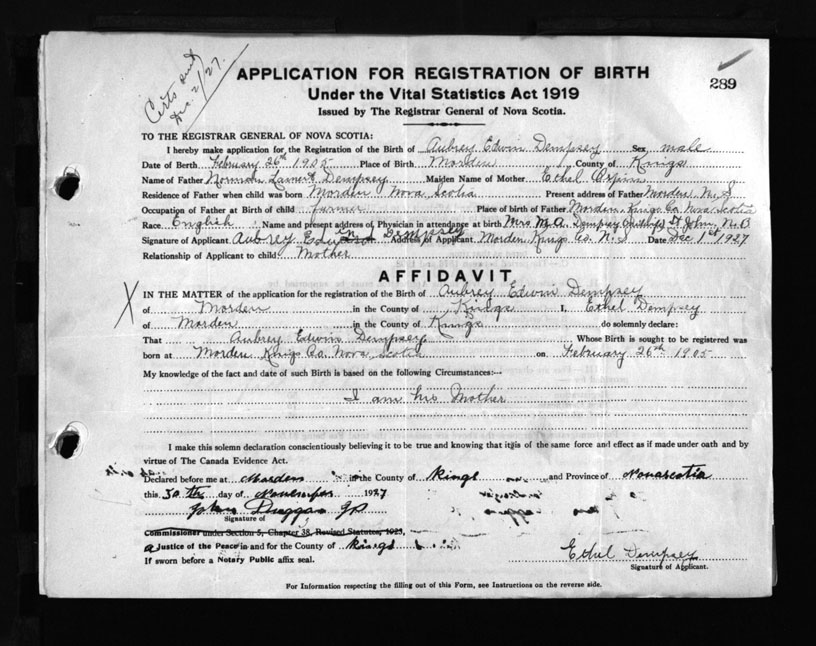 Certs sent
Dec 2/27.
APPLICATION FOR REGISTRATION OF BIRTH
289
Under the Vital Statistics Act 1919
Issued by The Registrar General of Nova Scotia.
TO THE REGISTRAR GENERAL OF NOVA SCOTIA:
I hereby make application for the Registration of the Birth of Aubrey Edwin Dempsey Sex male
Date of Birth February 26th 1905 Place of Birth Morden County of Kings
Name of Father Norman Dempsey Maiden Name of Mother Ethel
Residence of Father when child was born Morden Nova Scotia Present address of Father Morden N.S
Occupation of Father at Birth of child farmer Place of birth of Father Morden Kings Co. Nova Scotia
Race English Name and present address of Physician in attendance at birth Mrs M.A. Dempsey St John, N.B
Signature of Applicant Aubrey Edwin Dempsey Address of Applicant Morden Kings Co. N.S Date Dec 1st 1927
Relationship of Applicant to child Mother
AFFIDAVIT
X IN THE MATTER of the application for the registration of the Birth of Aubrey Edwin Dempsey
of Morden in the County of Kings I, Ethel Dempsey
of Morden in the County of Kings do solemnly declare:
That Aubrey Edwin Dempsey Whose Birth is sought to be registered was
born at Morden Kings Co. Nova Scotia on February 26th 1905
My knowledge of the fact and date of such Birth is based on the following Circumstances:—
I am his Mother
I make this solemn declaration conscientiously believing it to be true and knowing that it is of the same force and effect as if made under oath and by
virtue of The Canada Evidence Act.
Declared before me at Morden in the County of Kings and Province of Novascotia
this 30th day of November 1927
John Duggan JP
Signature of
Commissioner under Section 5, Chapter 38, Revised Statutes, 1923,
a Justice of the Peace in and for the County of Kings
Ethel Dempsey
If sworn before a Notary Public affix seal.
Signature of Applicant.
For Information respecting the filling out of this Form, see Instructions on the reverse side.